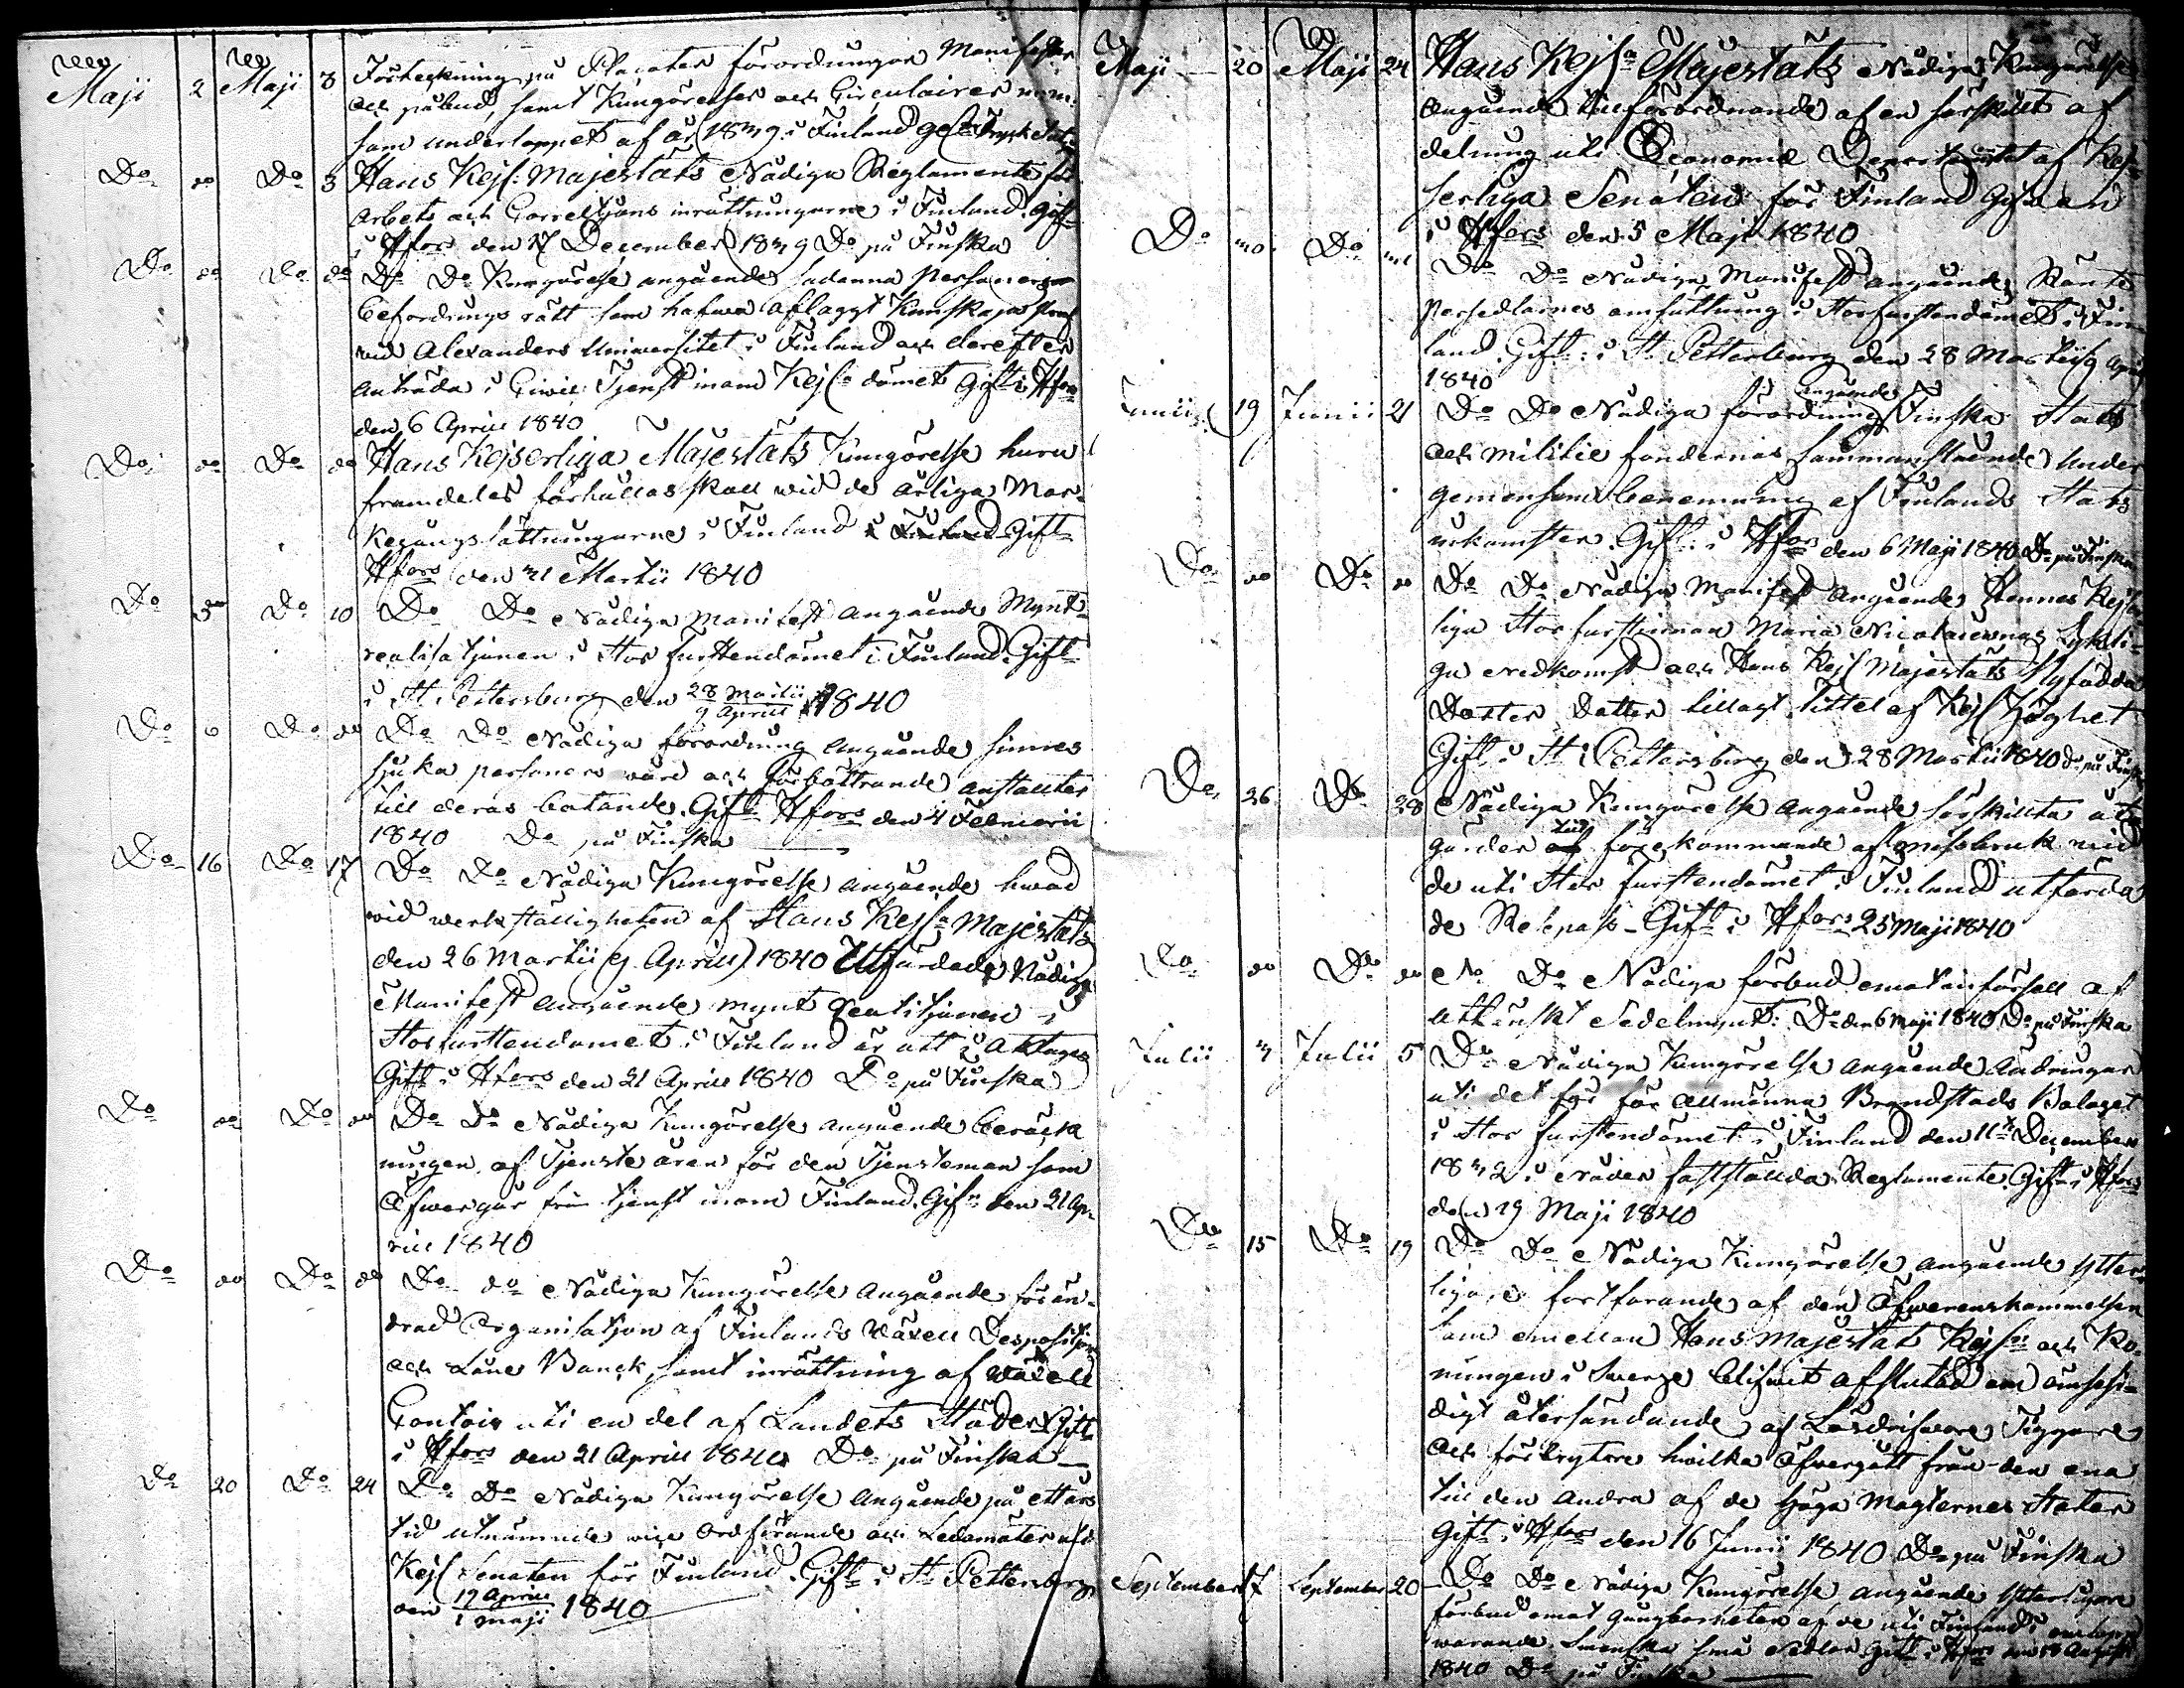 Maji 2 Maji 3 Förteckning på Placater förordningar Manifester
och påbud, samt Kungörelser och Circulairer m.m.
som underloppet af år 1839 i Finland
Do do Do 3 Hans Kejs: Majestäts Nådiga Reglemente för
Arbets och Correctjons inrättningarne i Finland. Gift
i Hfors den 17 December 1839 Do på Finska
Do do Do do Do Do Kungörelse angående sadanna personers
befordrings rätt som hafwa aflaggt Kunskaps prof
wid Alexanders Universitet i Finland och derefter
anträda i Civil Tjenst inom Kejs:dömet Gift i Hfors
den 6 April 1840
Do do Do do Hans Kejserliga Majestäts Kungörelse huru
framdeles förhållas skall wid de årliga Mar-
kegångsättningarne i Finland i Finland Gift
Hfors den 31 Martii 1840
Do 5 Do 10 Do Do Nådiga Manifest angående Mynt-
realisatjonen i Storfurstendömet i Finland. Gift
i St. Pettersburg den 28 Martii 9 April 1840
Do 6 Do do Do Do Nådiga förordning angående sinnes
sjuka personers vård och förbättrande anstallter
till deras botande. Gift Hfors den 4 Februarii
1840 Do på Finska
Do 16 Do 17 Do Do Nådiga Kungörelse angående hwad
wid werkställigheten af Hans Kejs:a Majestäts
den 26 Martii (9 April) 1840 Utfärdade Nådiga
Manifest angående mynt Realitjonen i
Storfurstendömet i Finland är att i akttaga
Gift i Hfors den 21 April 1840 Do på Finska
Do do Do do Do Do Nådiga Kungörelse angående beräck
ningen af Tjenste åren för den Tjensteman som
öfwergår från tjenst inom Finland. Gift den 21 Ap-
rill 1840
Do do Do do Do do Nådiga Kungörelse Angående förän-
drad Organisatjon af Finlands Wäxell Depositjons
och Låne Banck, samt inrättning af Wäxell
Contoir uti en del af Landets Städer Gift
i Hfors den 21 April 1840 Do på Finska
Do 20 Do 24 Do Do Nådiga Kungörelse angående på ett års
tid utnämnde wice Ordförande och Ledamöter uti
Kejs Senaten för Finland. Gift i St Pettersburg
den 19 April 1 maji 1840
Maji 20 Maji 24 Hans Kejs:a Majestäts Nådiga Kungörelse
angående tillförordnande af en särskildt af
delning uti Economie Departementet af Kej-
serliga Senaten för Finland Gifwen
i Hfors den 5 Maji 1840
Do 30 Do 31 Do Do Nådiga Manifest angående Ränte
Persedlarnes omsättning i Storfurstendömet i Fin-
land. Gift i St. Petterburg den 28 Martii 9 April
1840
Junii 19 Junii 21 Do Do Nådiga förordning angående Finska Stats
och militie fondernas sammanslående under
gemensam benemning af Finlands Stats
inkomster. Gift i Hfors den 6 Maji 1840 Do på Finska
Do do Do do Do Do Nådiga Manifest angående Hennes Kejser
liga Storfurstinnan Maria Nicolaiewnas Lykli-
ga nedkomst och Hans Kejs Majestäts Nyfödda
Dotter Dotter tillagt Tittel af Kejs Höghet
Gift i St Pettersburg den 28 Martii 1840 do på Finska
Do 26 Do 28 Nådiga Kungörelse angående särskillta åt-
gärder till förekommande af missbruk wid
de uti Stor furstendömet i Finland utfärda
de Respass - Gift i Hfors 25 Maji 1840
Do do Do do Do Do Nådiga förbud emot införsell af
utländskt Sedelmynt: Do den 6 maji 1840 Do på Finska
Julii 3 Julii 5 Do Nådiga Kungörelse angående Ändringar
uti det för för Allmänna Brandstods Bolaget
i Stor furstendömet i Finland den 11 December
1832 i Nåder fastställda Reglemente. Gift i Hfors
den 29 Maji 1840
Do 15 Do 19 Do Do Nådiga Kungörelse angående ytter-
ligare fortfarande af den Öfwerenskommelsen
som emellan Hans Majestät Kejs:n och Ko-
nungen i Swerge blifwit afslutad om ömsesi-
digt återsändande af Lösdrifware, Tiggare
och förbrytare hwilka Öfwergått från den ena
till den andra af de höga Magternes Stater
Gift i Hfors den 16 Junii 1840 Do på Finska
September 17 September 20 Do Do Nådiga Kungörelse angående ytterligare
förbud emot gångbarheten af de uti Finland i omlopp
warande Swenska små Sedlar. Gift i Hfors den 18 Augusti
1840 Do på Finska